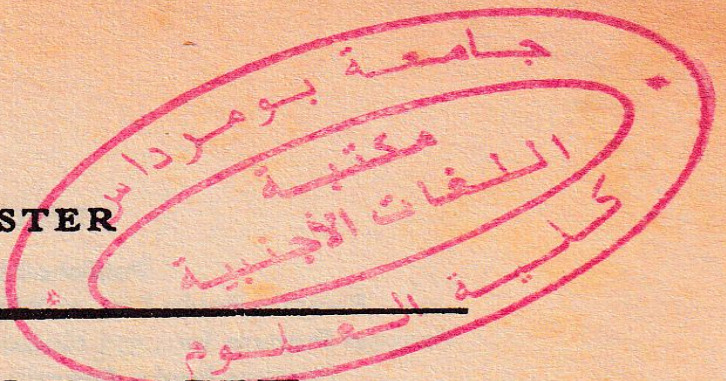 جامعة بومرداس
مكتبة
اللغات الأجنبية
كلية العلوم
STER